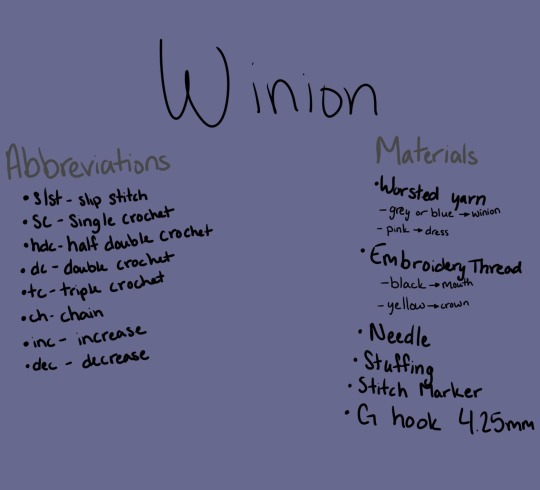 Winion
Abbreviations
• slst - slip stitch
• Sc - Single crochet
• hdc - half double crochet
• dc - double crochet
• tc - triple crochet
• ch - chain
• inc - increase
• dec - decrease
Materials
• Worsted yarn
- grey or blue → winion
- pink → dress
• Embroidery Thread
- black → mouth
- yellow → crown
• Needle
• Stuffing
• Stitch Marker
• G hook 4.25mm